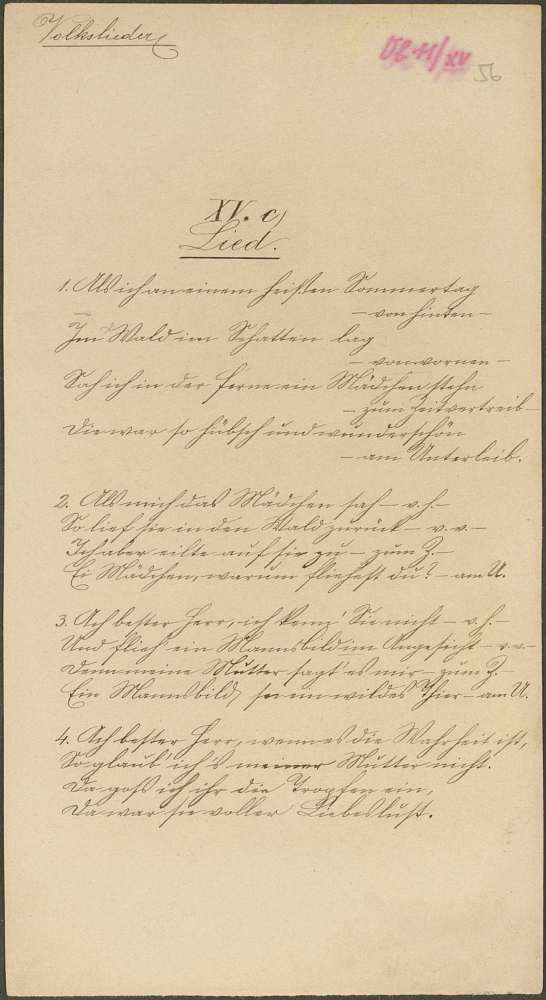 Volkslieder
Ob 11/XV
56
XV. c)
Lied.
1. Als ich an einem heißen Sommertag
– von hinten –
Im Wald im Schatten lag
– von vornen –
Sah ich in der Ferne ein Mädchen stehn
– zum Zeitvertreib –
Die war so hübsch und wunderschön
– am Unterleib.
2. Als mich das Mädchen sah – v. h. –
So lief sie in den Wald zurück – v. v. –
Ich aber eilte auf sie zu – zum Z. –
Ei Mädchen, warum fliehest du? – am U.
3. Ach bester Herr, ich kenn' Sie nicht – v. h. –
Und flieh' ein Mannsbild im Angesicht – v. v. –
Denn meine Mutter sagt' es mir – zum Z. –
Ein Mannsbild, sei ein wildes Thier – am U.
4. Ach bester Herr, wenn es die Wahrheit ist,
So glaub' ich's meiner Mutter nicht.
Da goß ich ihr die Tropfen ein,
Da war sie voller Liebeslust.